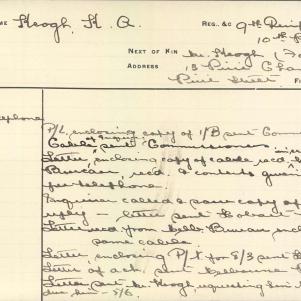 ME Keogh, H. A. REG. &c 9th Rein
10th
NEXT OF KIN Mr. Keogh (Fa
ADDRESS 13 Pine Cha
Pirie Street
ephone
P/L, enclosing copy of 1/B sent Comm
of enquiry
Cable sent Commissioners
Letter, enclosing copy of cable recd. by
Bureau, recd. & contents given
per telephone.
Enquirer called & saw copy of
reply - letter sent Hobart
Letter recd from Melb. Bureau enclo
same cable.
Letter, enclosing P/T for 8/3 sent
Letter of ack. sent Melbourne
Letter sent Mr Keogh requesting him
8/6.